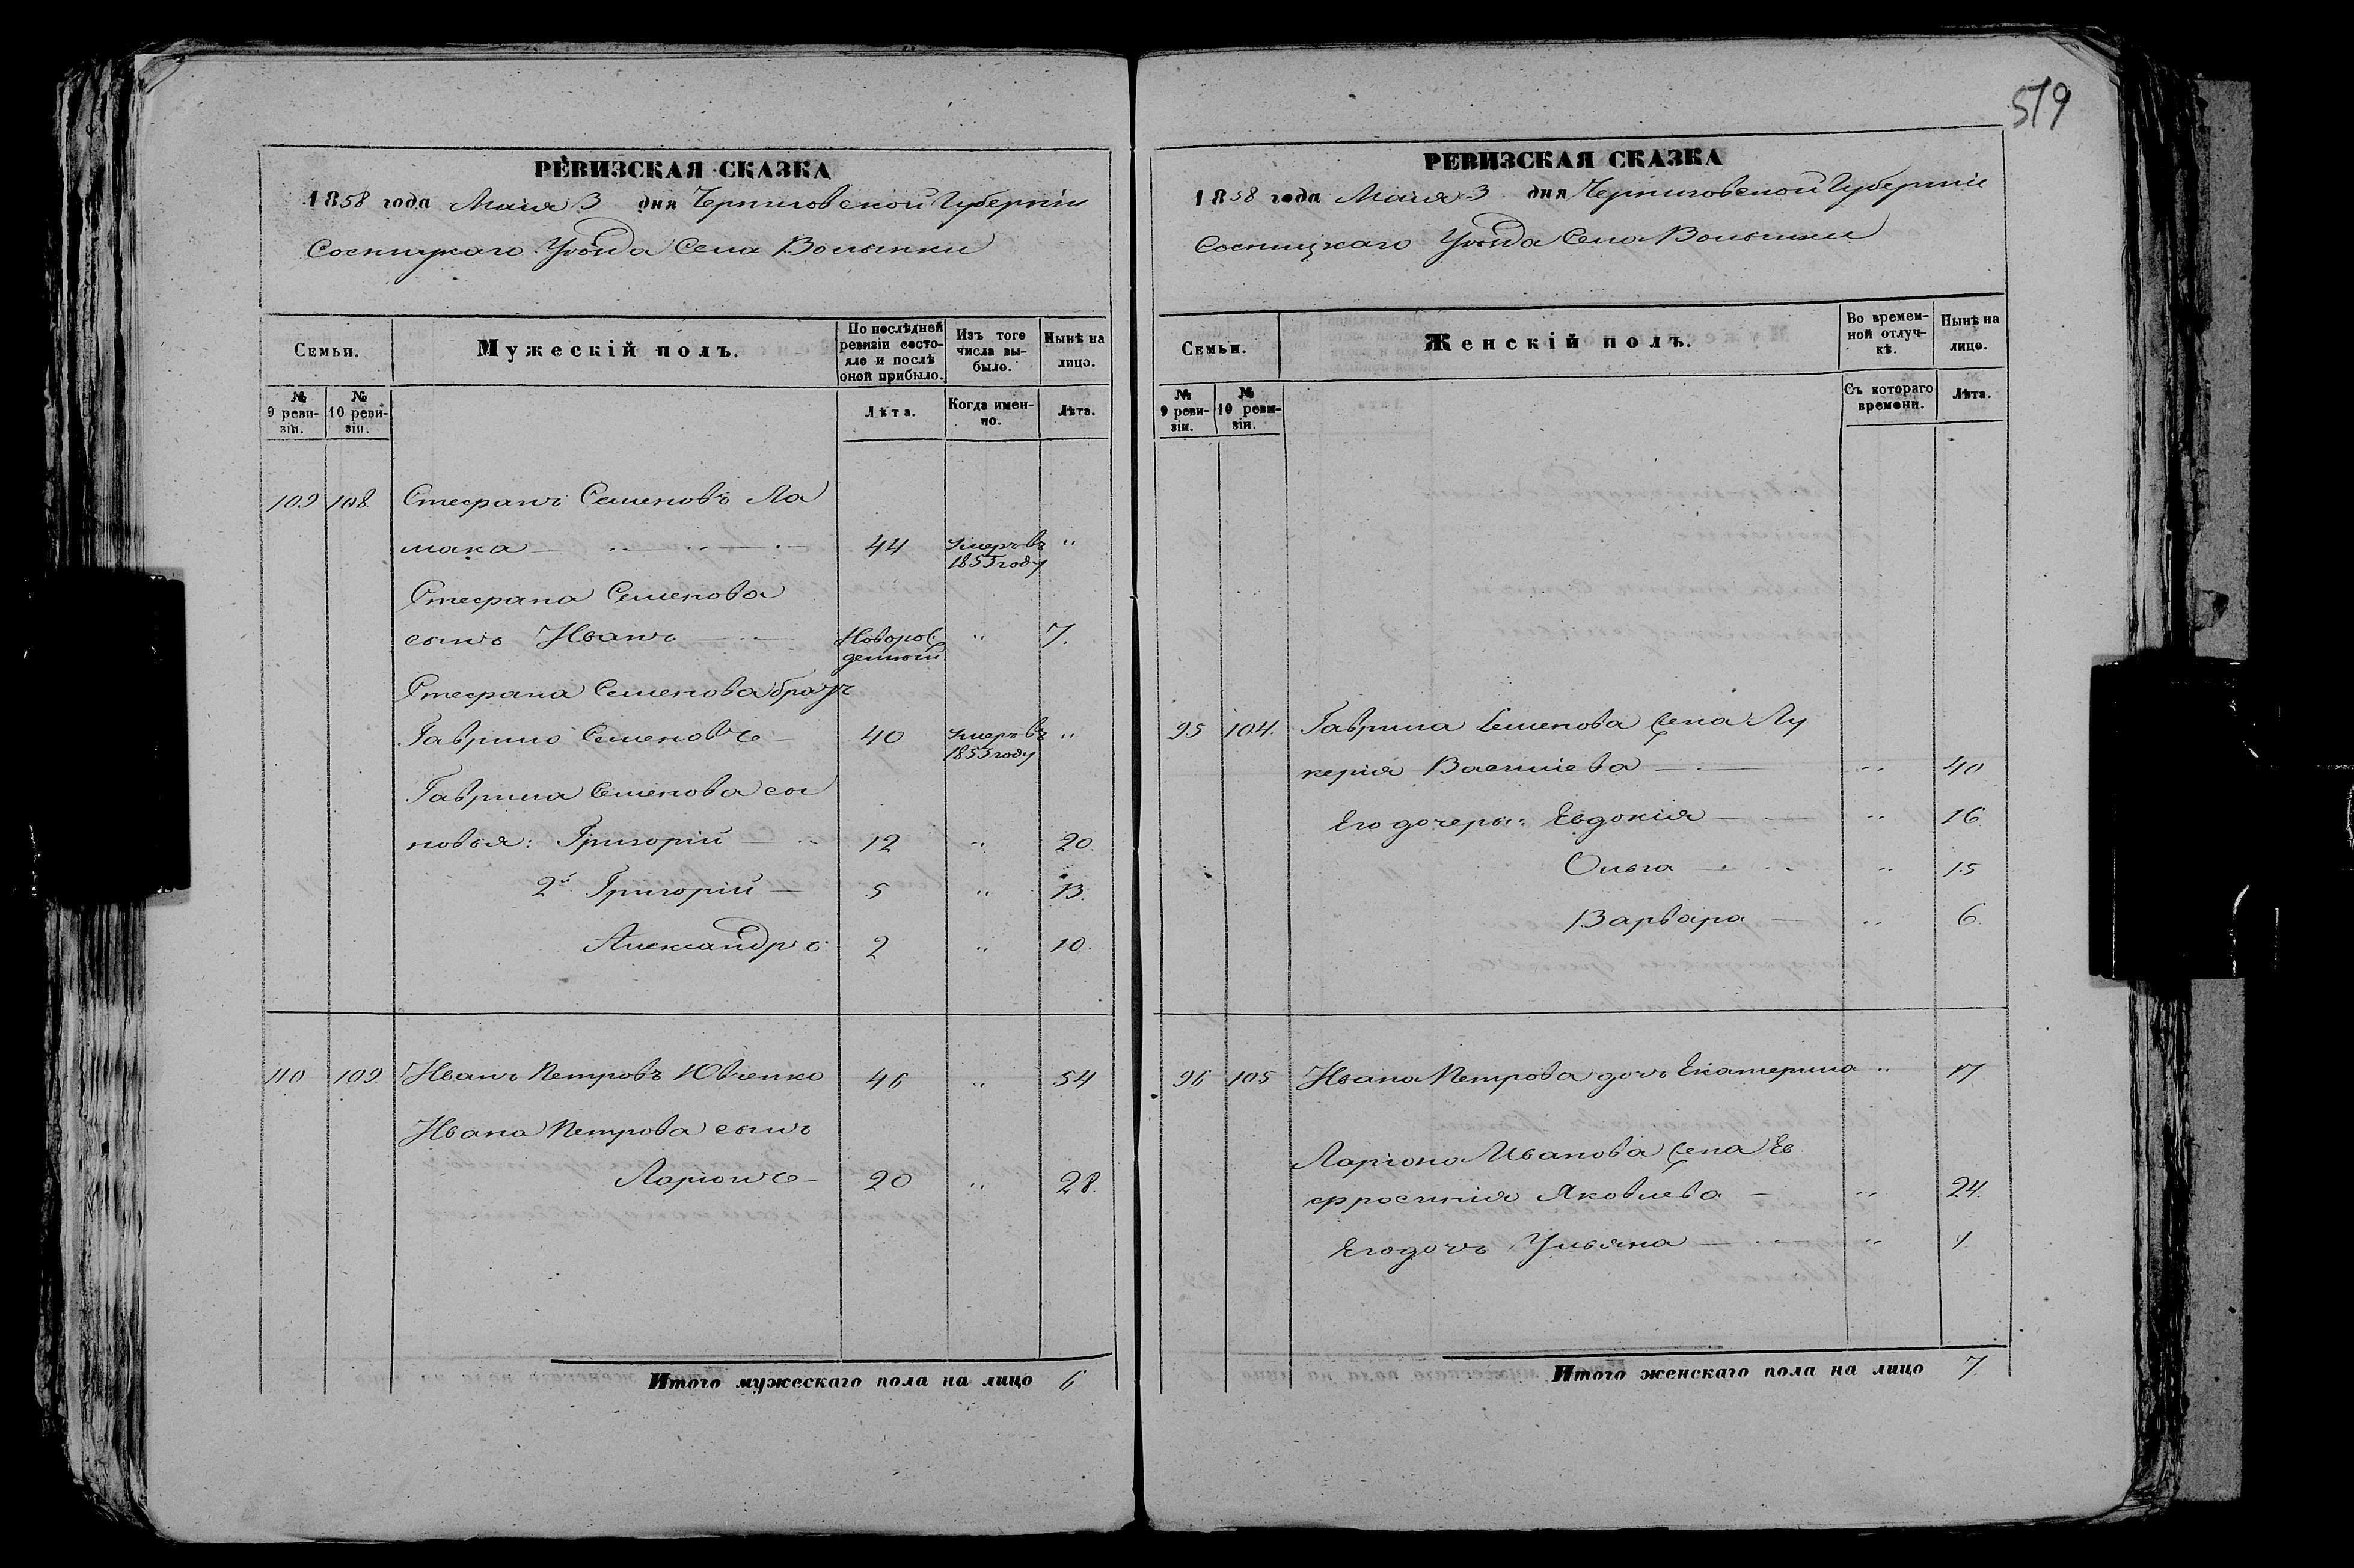 519
РЕВИЗСКАЯ СКАЗКА
1858 года Маия 3 дня Черниговской Губерніи
Сосницкаго Уѣзда Села Волынки
Семьи.
Мужескій полъ.
По послѣдней ревизіи состояло и послѣ оной прибыло.
Изъ того числа выбыло.
Нынѣ на лицо.
№ 9 ревизіи.
№ 10 ревизіи.
Лѣта.
Когда именно.
Лѣта.
109 108 Стефанъ Семеновъ Ла
мака 44 умеръ въ 1855 году "
Стефана Семенова
сынъ Иванъ Новорожденный " 7.
Стефана Семенова братъ
Гаврило Семеновъ 40 умеръ въ 1855 году "
Гаврила Семенова сы
новья: Григорій 12 " 20.
2й Григорій 5 " 13.
Александръ 2 " 10.
110 109 Иванъ Петровъ Ювченко 46 " 54
Ивана Петрова сынъ
Ларіонъ 20 " 28.
Итого мужескаго пола на лицо 6
РЕВИЗСКАЯ СКАЗКА
1858 года Маия 3 дня Черниговской Губерніи
Сосницкаго Уѣзда Села Волынки
Семьи.
Женскій полъ.
Во временной отлучкѣ.
Нынѣ на лицо.
№ 9 ревизіи.
№ 10 ревизіи.
Съ котораго времени.
Лѣта.
95 104. Гаврила Семенова жена Лу
керія Васильева " 40
Его дочеры: Евдокія " 16.
Ольга " 15
Варвара " 6.
96 105 Ивана Петрова дочь Екатерина " 17
Ларіона Иванова жена Ев
фросинія Яковлева " 24.
Его дочь Ульяна " 1.
Итого женскаго пола на лицо 7.